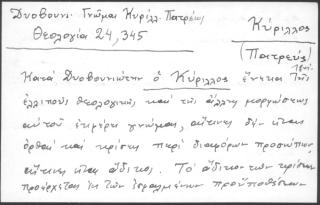 Δυοβουνι. Γνῶμαι Κυρίλλ. Πατρέως
Θεολογία 24, 345
Κύριλλος
(Πατρεύς)
Κατὰ Δυοβουνιώτην ὁ Κύριλλος ἕνεκα τῆς
ἐλλιποῦς θεολογικῆς καὶ τῆς ἄλλης μορφώσεως
αὐτοῦ ἐκφέρει γνώμας, αἵτινες δὲν εἶναι
ὀρθαὶ καὶ κρίσεις περὶ διαφόρων προσώπων,
αἵτινες εἶναι ἄδικοι. Τὸ ἄδικον τῶν κρίσεων
προέρχεται ἐκ τῶν ἐσφαλμένων προϋποθέσεων